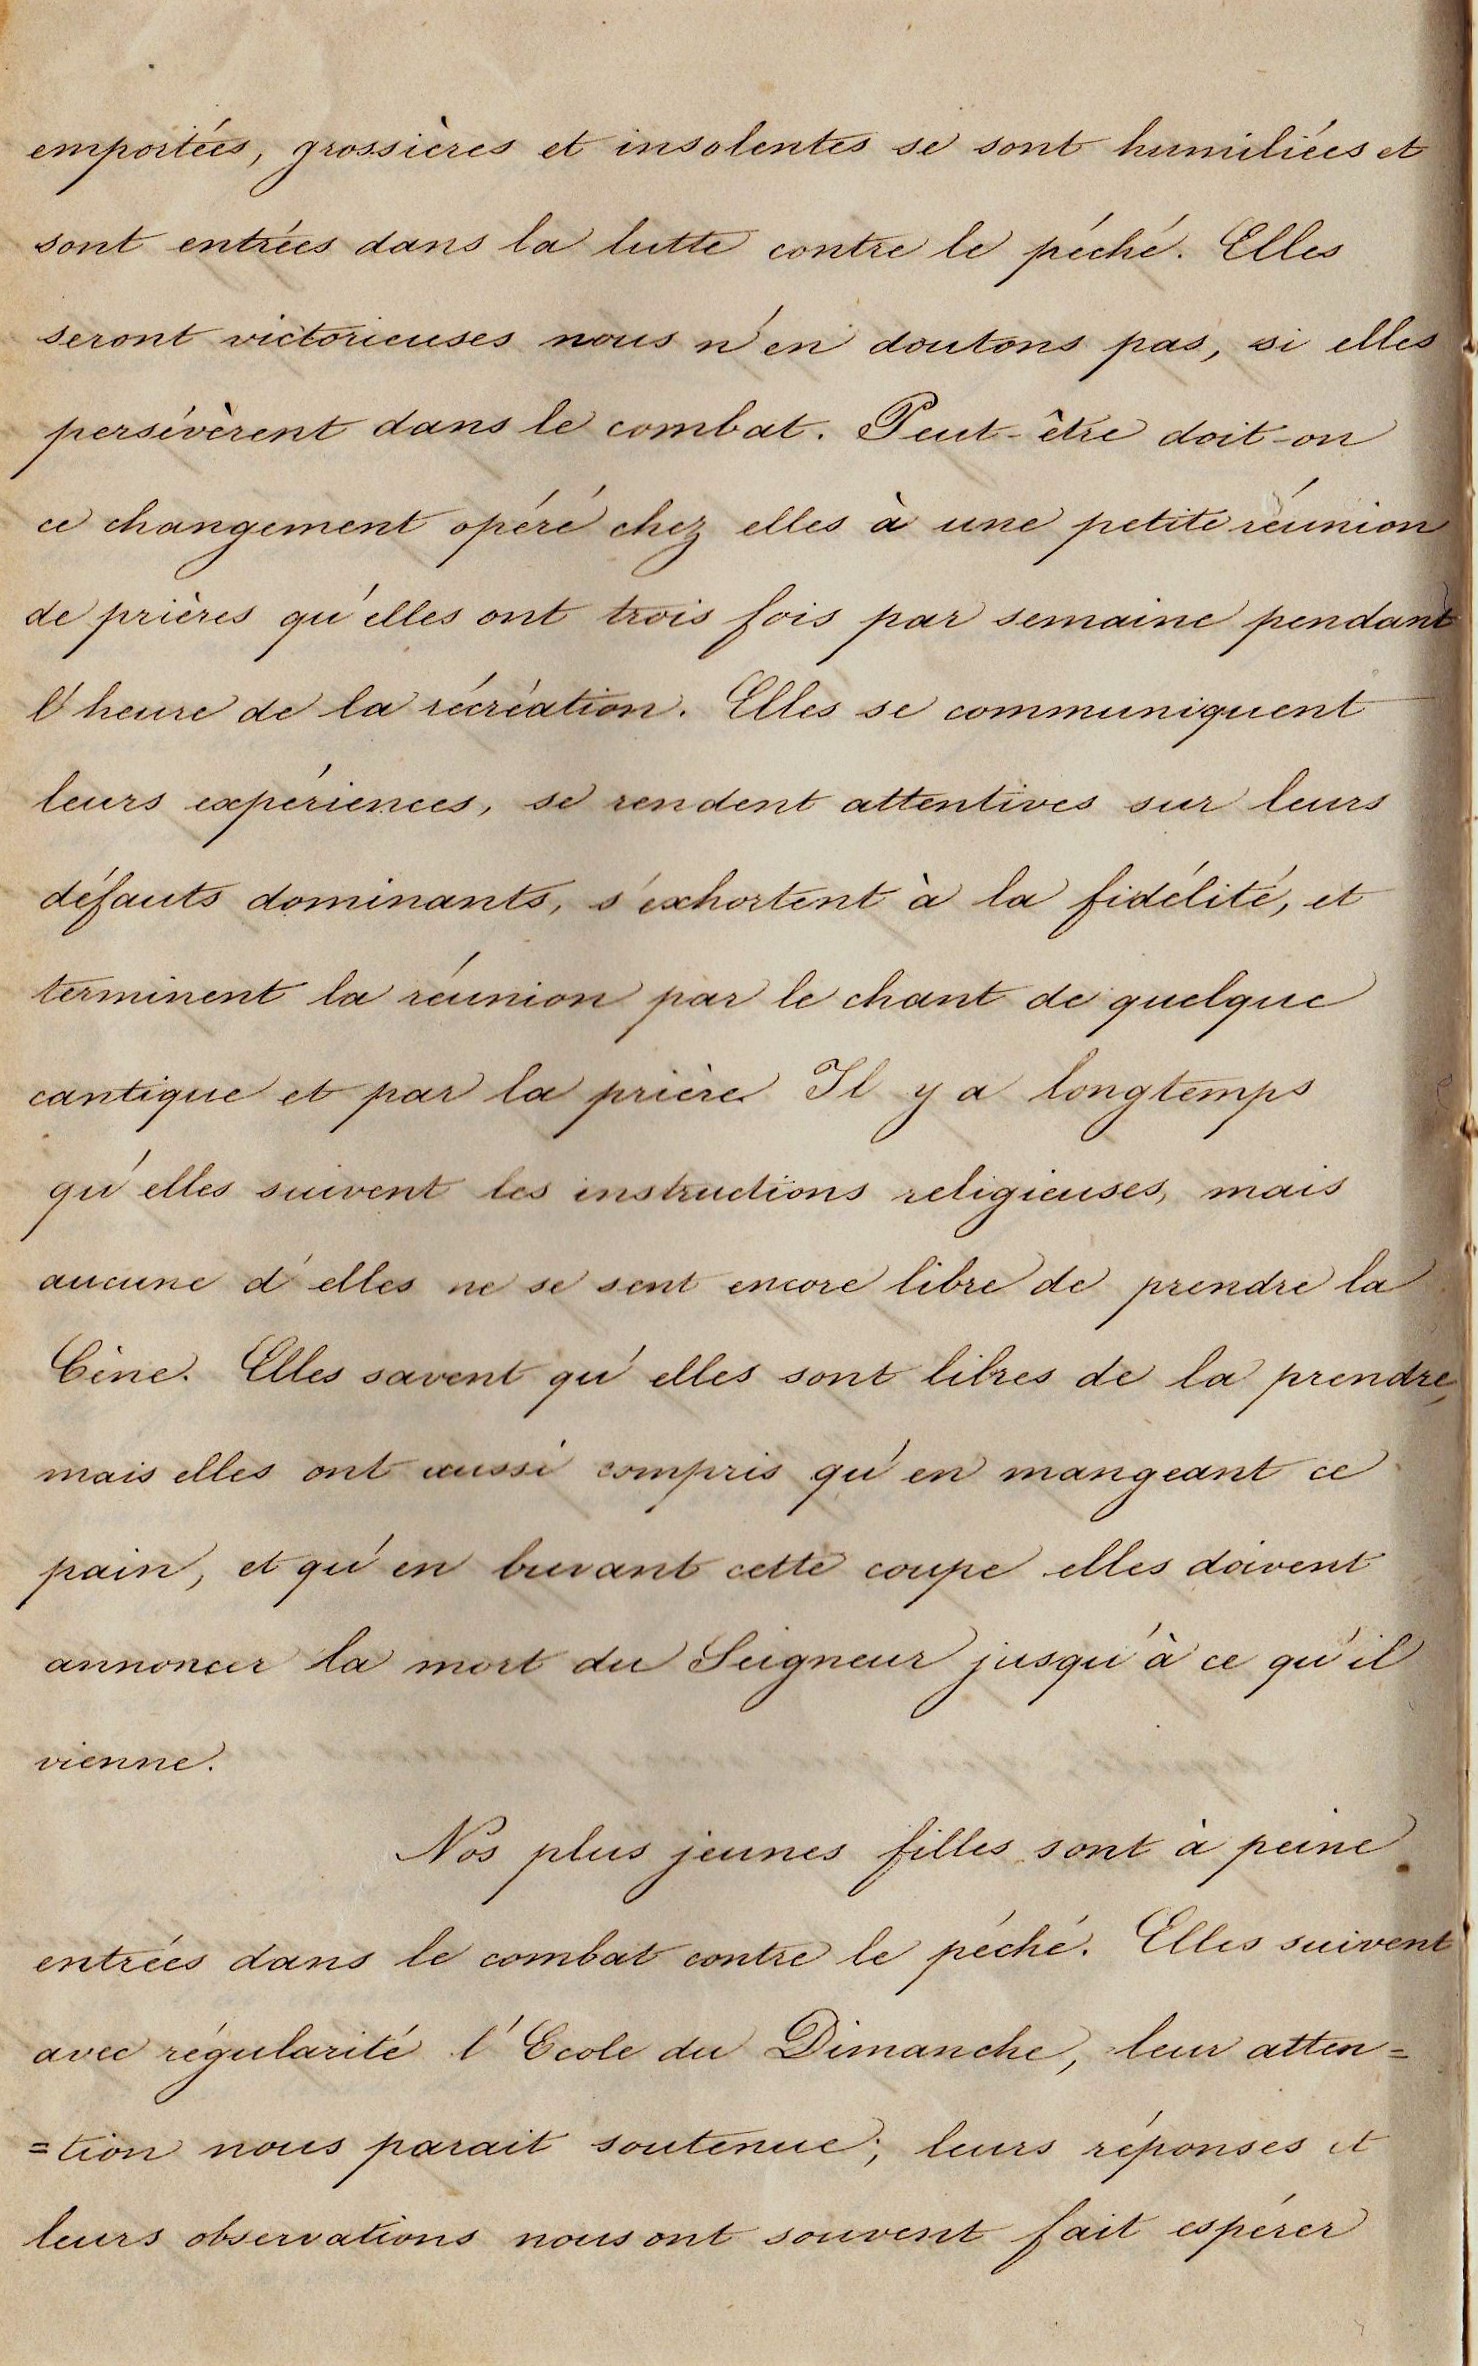 emportées, grossières et insolentes se sont humiliées et
sont entrées dans la lutte contre le péché. Elles
seront victorieuses nous n'en doutons pas, si elles
persévèrent dans le combat. Peut-être doit-on
ce changement opéré chez elles à une petite réunion
de prières qu'elles ont trois fois par semaine pendant
l'heure de la récréation. Elles se communiquent
leurs expériences, se rendent attentives sur leurs
défauts dominants, s'exhortent à la fidélité, et
terminent la réunion par le chant de quelque
cantique et par la prière. Il y a longtemps
qu'elles suivent les instructions religieuses, mais
aucune d'elles ne se sent encore libre de prendre la
Cène. Elles savent qu'elles sont libres de la prendre,
mais elles ont aussi compris qu'en mangeant ce
pain, et qu'en buvant cette coupe elles doivent
annoncer la mort du Seigneur jusqu'à ce qu'il
vienne.
Nos plus jeunes filles sont à peine
entrées dans le combat contre le péché. Elles suivent
avec régularité l'Ecole du Dimanche, leur atten=
=tion nous parait soutenue; leurs réponses et
leurs observations nous ont souvent fait espérer